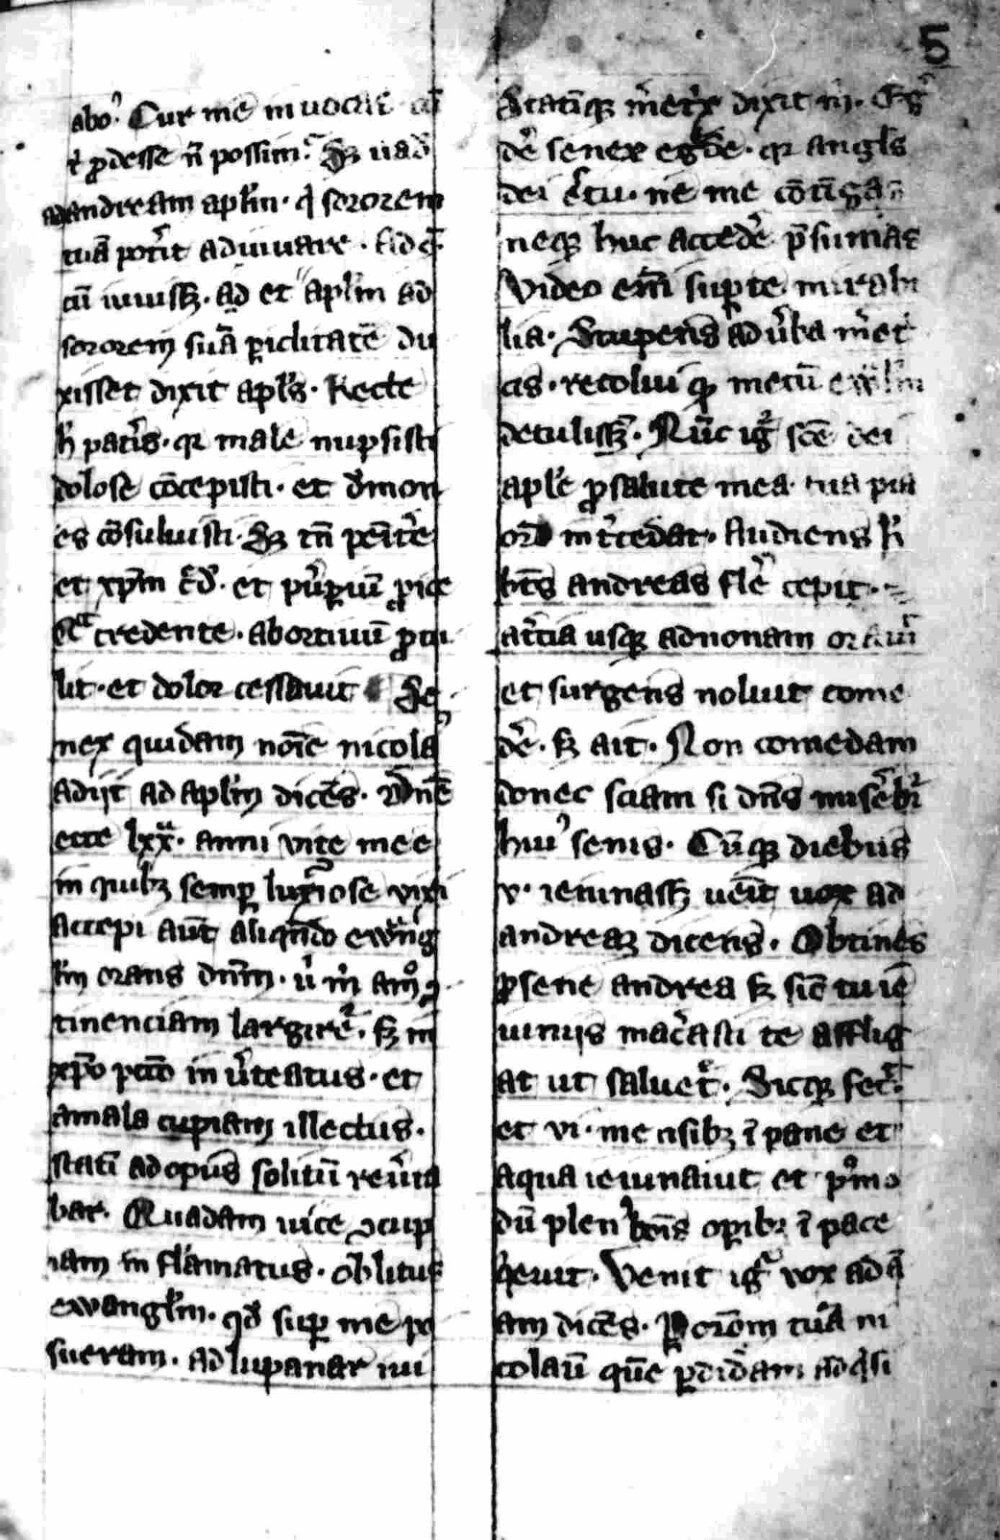 5
abo⁹. Cur me inuocas cū
t̄ ꝓdesse n̄ possim. Sꝫ uad̓
ad andream aplm̄. q̓ sororem
tuā pot̓it adiuuare.
cū iuuisꝫ. ad et aplm̄ ad
sororem suā ꝑiclitātē du
xisset dixit apl̓s. Recte
h̓ pat̓is. qr male nupsisti
dolose cōcepisti. et demon
es cōsuluisti. Sꝫ tn̄ penit̓e
et xp̄m c̓d̓. et pu̓ꝑiū ꝓice
credente. abortiuū ꝓtu
lit. et dolor cessauit Se
nex quidam noīe nicola⁹
adijt ad aplm̄ dicēs. Dn̄e
ecce lxx. anni vite mee
in quibꝫ semꝑ luxu̓iose vixi
accepi aut̄ aliqn̄do ewāng
lm̄ orans dn̄m. ut m̓ amo ꝯ
tinenciam largiret̓. sꝫ in
xp̄o pctō inu̓teatus. et
a mala cupiam illectus.
statī ad opus solitū reu̓te
bar. Quadam uice ꝯcup
iam inflāmatus. oblitus
ewanglm̄. qd̓ suꝑ me po
sueram. ad lupanar iui
Statīqꝫ m̓etr̓x dixit m̓. Eg̓
de̓ senex eg̓de̓. qr angl̓s
dei es tu. ne me cōtīgas
neqꝫ huc accede̓ p̄sumas
Video em̄ suꝑ te mirabi
lia. Stupens ad u̓ba m̓et̓
cis. recolui qꝫ mecū ewālm̄
detulissꝫ. Nūc igr̓ scē dei
aple̓ ꝓ salute mea tua pia
orō int̓cedat. Audiens h̓
bt̄s andreas fle̓ cepit.
a t̓cia usqꝫ ad nonam orauit
et surgens noluit come
de̓. sꝫ ait. Non comedam
donec sciam si dn̄s mise̓br̓
hui⁹ senis. Cūqꝫ diebus
v. ieiunassꝫ uēit uox ad
andreaꝫ dicens. Obtines
ꝓ sene andrea sꝫ sic̄ tu ie
iunijs mac̓asti te afflig
at ut saluet̓. Sicqꝫ fec̓.
et vi. mensibꝫ ī pane et
aqua ieiunauit et pᵒmo
dū plen⁹ bonis oꝑibꝫ ī pace
q̓euit. Venit igr̓ vox ad ā
am dicēs. P orōm tuā ni
colaū quē ꝑdid̓am adq̓si